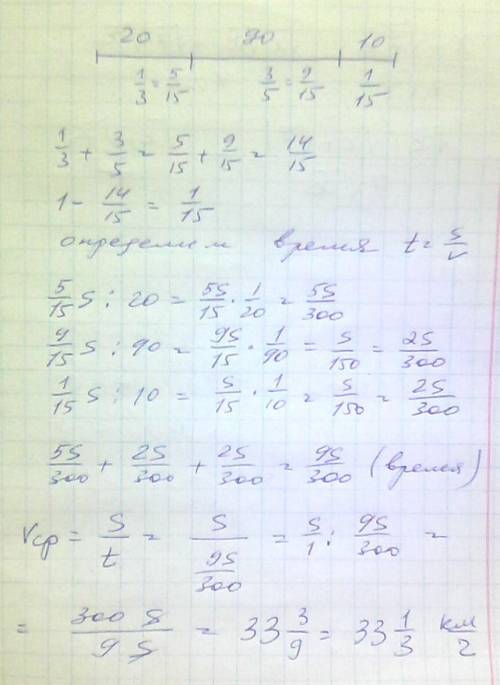 20 90 10
1/3 = 5/15 3/5 = 9/15 1/15
1/3 + 3/5 = 5/15 + 9/15 = 14/15
1 - 14/15 = 1/15
определим время t = S/v
5/15 S : 20 = 5S/15 · 1/20 = 5S/300
9/15 S : 90 = 9S/15 · 1/90 = S/150 = 2S/300
1/15 S : 10 = S/15 · 1/10 = S/150 = 2S/300
5S/300 + 2S/300 + 2S/300 = 9S/300 (время)
Vср = S/t = S/(9S/300) = S/1 : 9S/300 =
= 300 S/9 S = 33 3/9 = 33 1/3 км/г